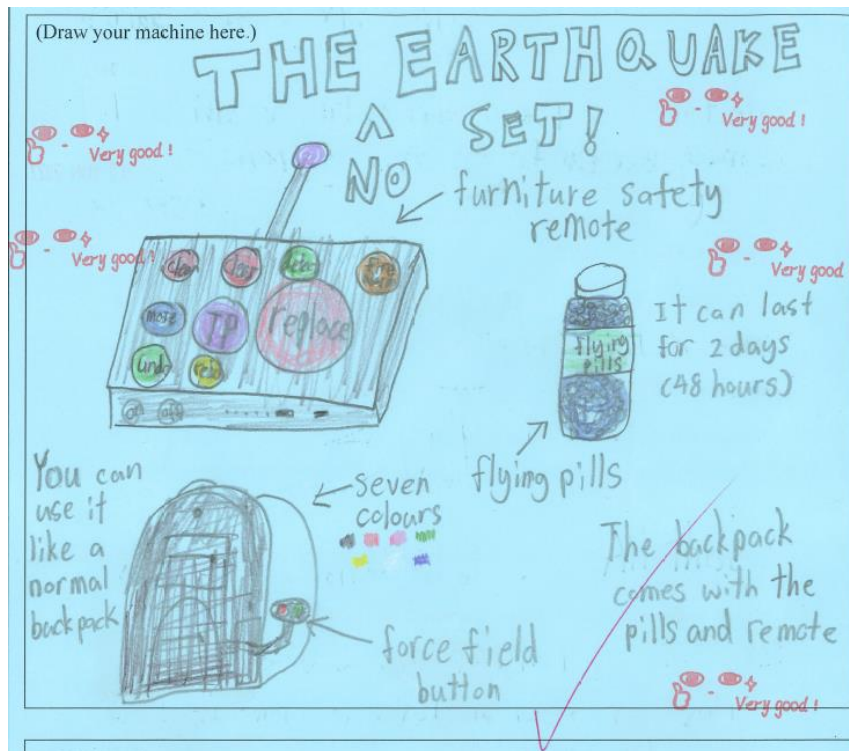 (Draw your machine here.)
THE EARTHQUAKE
^ SET!
NO
Very good !
Very good !
furniture safety
remote
Very good !
Very good
clean
select
replace
more
TP
undo
redo
on
off
flying
pills
It can last
for 2 days
(48 hours)
flying pills
You can
use it
like a
normal
backpack
seven
colours
force field
button
The backpack
comes with the
pills and remote
Very good !